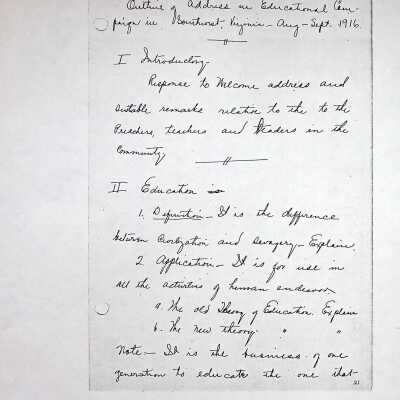 Outline of Address in Educational Cam-
paign in Southwest, Virginia - Aug - Sept. 1916.
I Introductory -
Response to Welcome address and
suitable remarks relative to the to the
Preachers, teachers and leaders in the
Community,
II Education is
1. Definition - It is the difference
between Civilization and savagery - Explain.
2. Application - It is for use in
all the activities of human endeavor
a. The old Theory of Education. Explain
b - The new theory. " "
Note - It is the business of one
generation to educate the one that